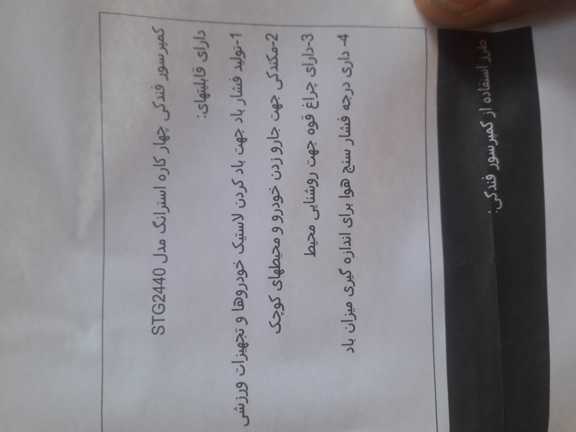 کمپرسور فندکی چهار کاره استرانگ مدل STG2440
دارای قابلیتهای:
1-تولید فشار باد جهت باد کردن لاستیک خودروها و تجهیزات ورزشی
2-مکندگی جهت جارو زدن خودرو و محیطهای کوچک
3-دارای چراغ قوه جهت روشنایی محیط
4- داری درجه فشار سنج هوا برای اندازه گیری میزان باد
طرز استفاده از کمپرسور فندکی: